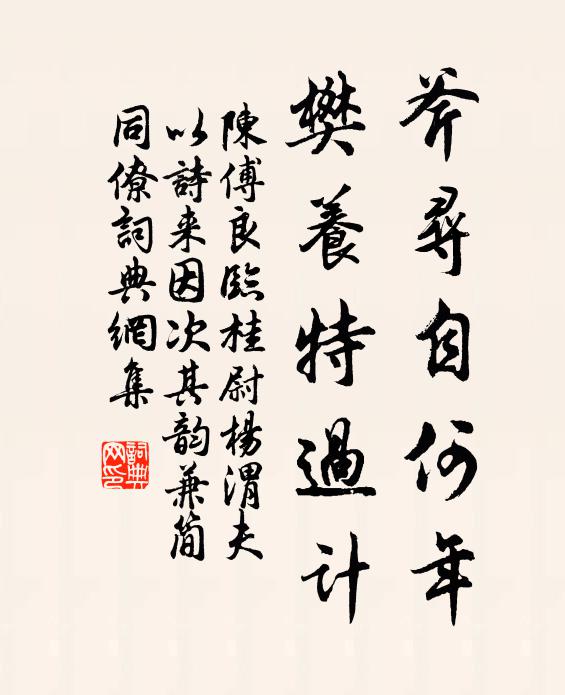 斧尋自何年
樊養特過計
陳傅良臨桂尉楊渭夫
以詩来因次其韵兼簡
同僚詞典網集
詞典网印